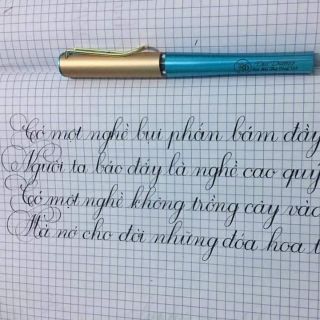 Có một nghề bụi phấn bám đầy
Người ta bảo đấy là nghề cao quý
Có một nghề không trồng cây vào
Mà nở cho đời những đóa hoa t